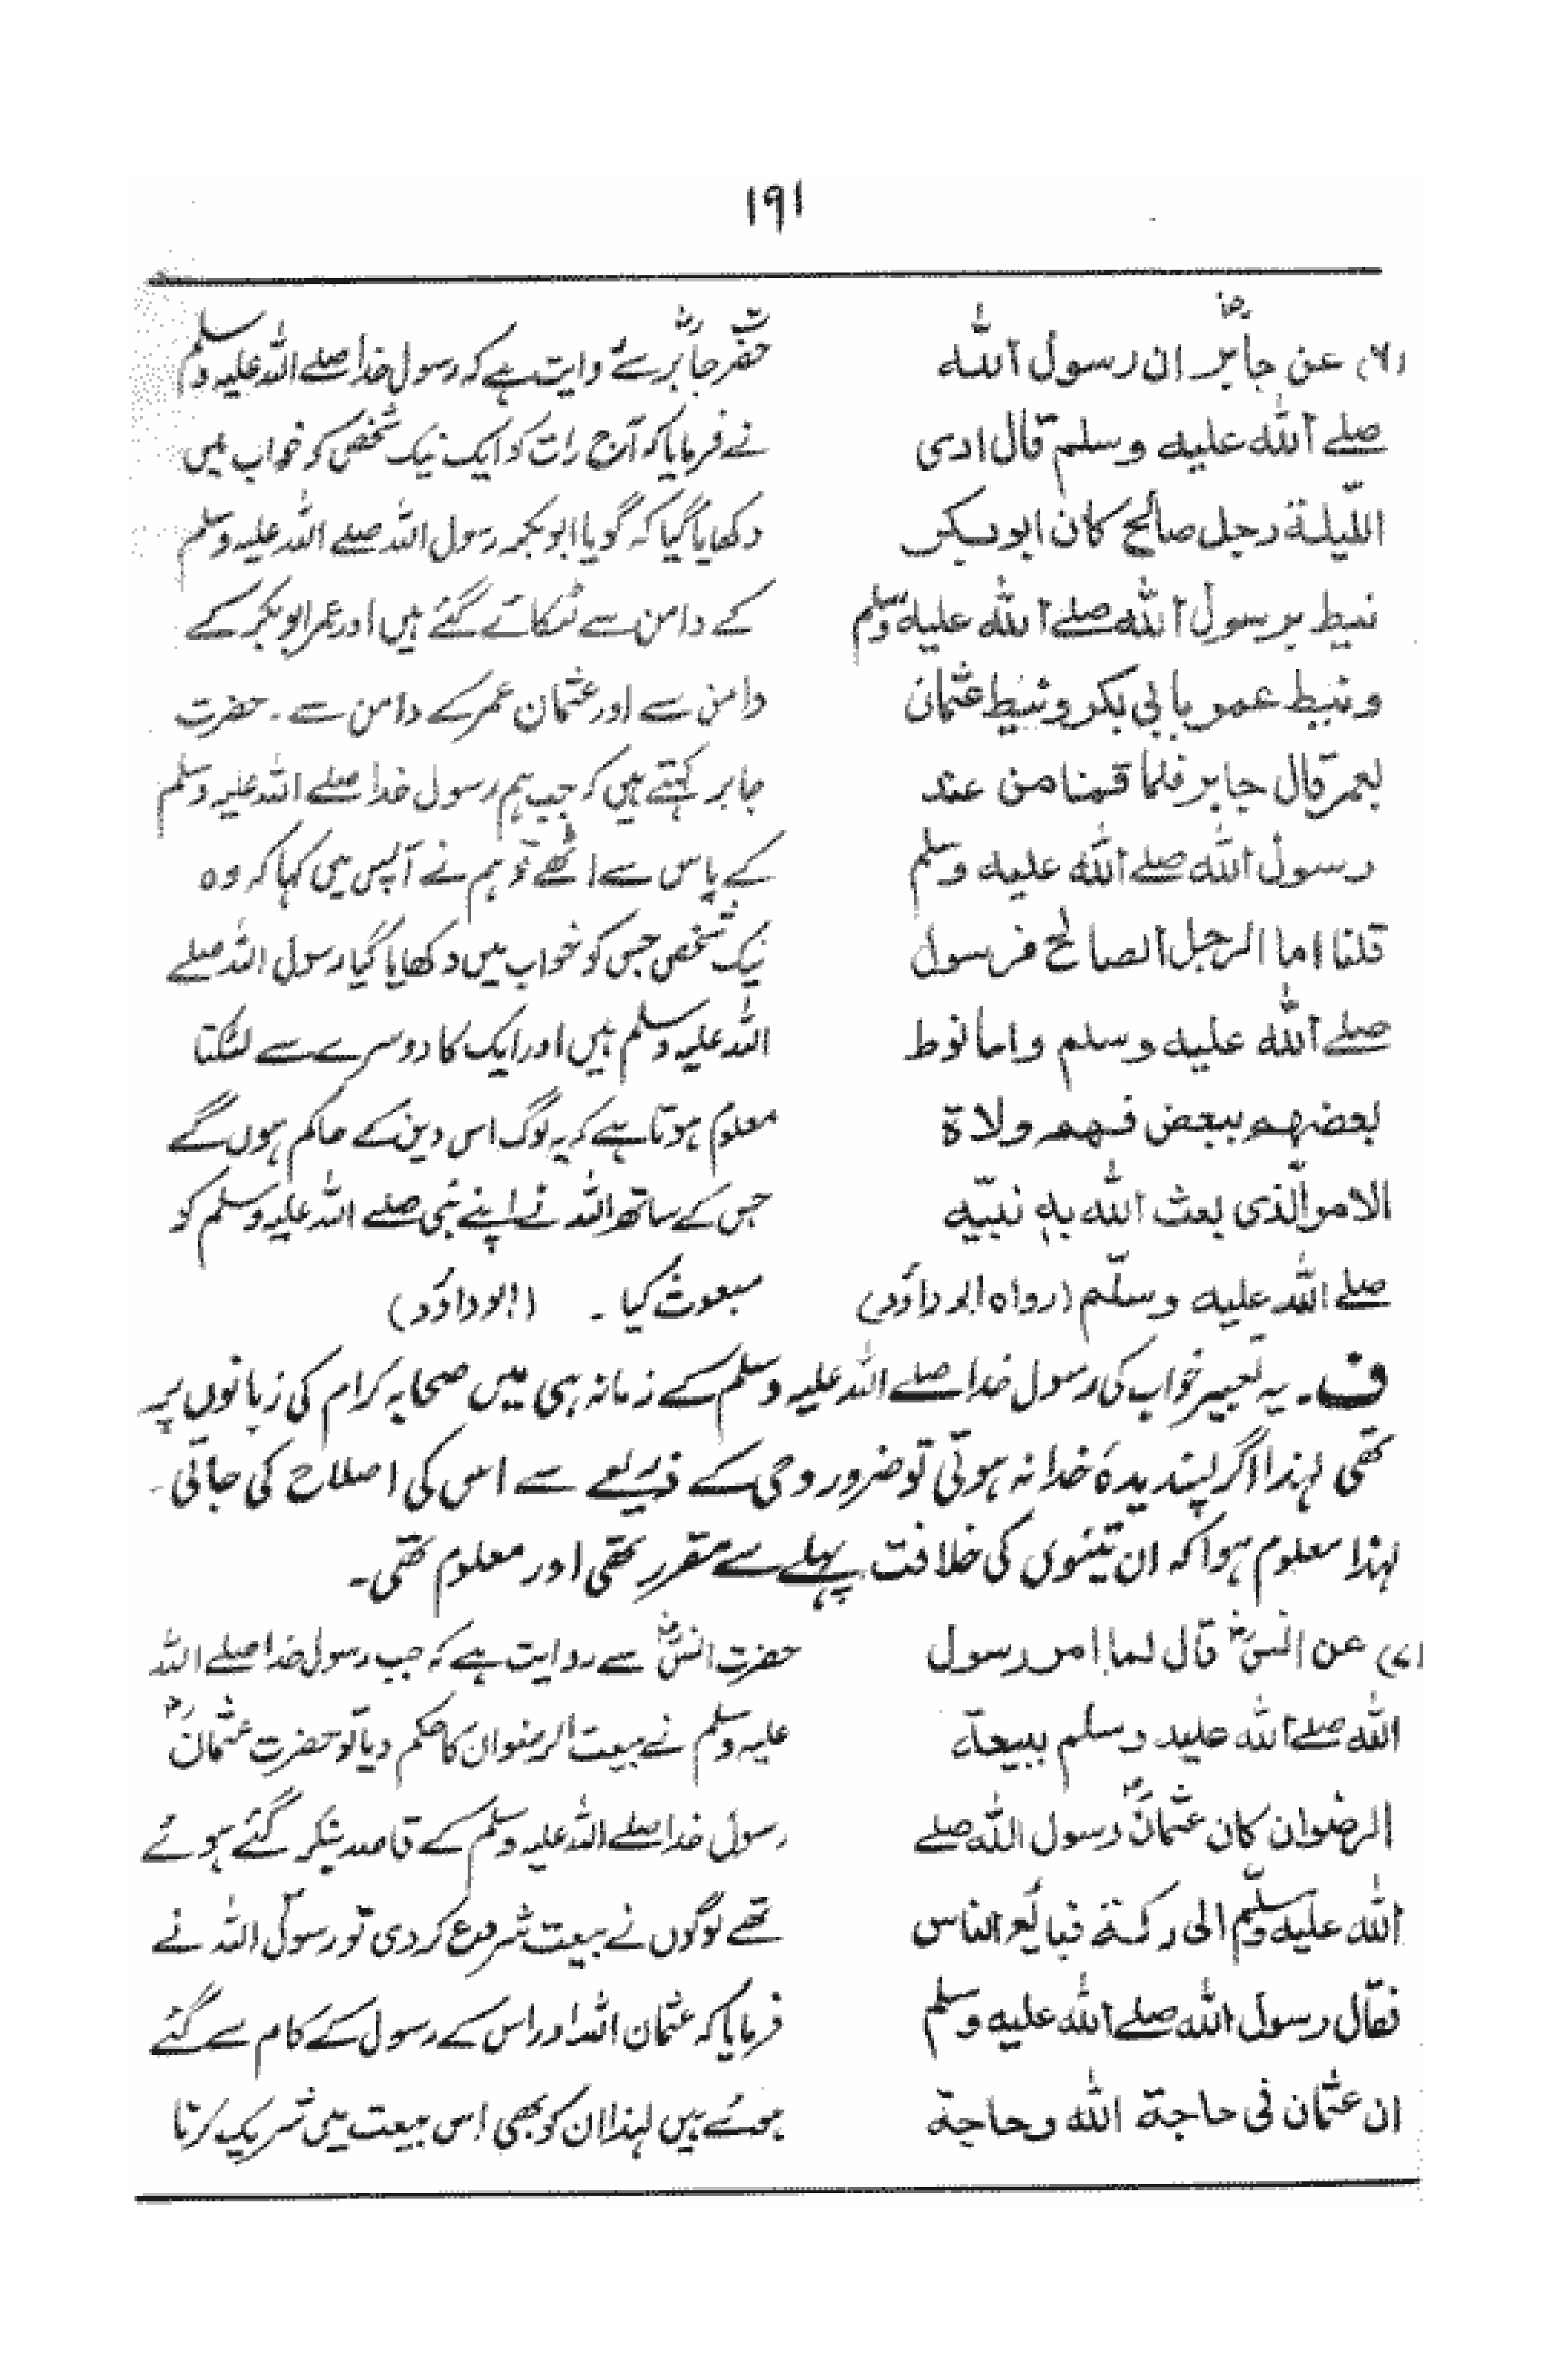 ۱۹۱
(۶) عن جابرؓ ان رسول الله
صلے الله عليه وسلم قال ادى
الليلة رجل صالح كان ابو بكر
نيط برسول الله صلے الله عليه وسلم
ونيط عمر بابي بكر ونيط عثمان
بعمر قال جابر فلما قمنا من عند
رسول الله صلے الله عليه وسلم
قلنا اما الرجل الصالح فرسول
صلے الله عليه وسلم واما نوط
بعضهم ببعض فهم ولاة
الامر الّذى بعث الله به نبيّه
صلے الله عليه وسلّم (رواه ابو داؤد)
حضرت جابرؓ سے روایت ہے کہ رسول خدا صلے اللہ علیہ وسلم
نے فرمایا کہ آج رات کو ایک نیک شخص کو خواب میں
دکھایا گیا کہ گویا ابوبکر رسول اللہ صلے اللہ علیہ وسلم
کے دامن سے لٹکائے گئے ہیں اور عمر ابوبکر کے
دامن سے اور عثمان عمر کے دامن سے۔ حضرت
جابر کہتے ہیں کہ جب ہم رسول خدا صلے اللہ علیہ وسلم
کے پاس سے اٹھے تو ہم نے آپس میں کہا کہ وہ
نیک شخص جس کو خواب میں دکھایا گیا رسول اللہ صلے
اللہ علیہ وسلم ہیں اور ایک کا دوسرے سے لٹکتا
معلوم ہوتا ہے کہ یہ لوگ اس دین کے حاکم ہوں گے
جس کے ساتھ اللہ نے اپنے نبی صلے اللہ علیہ وسلم کو
مبعوث کیا۔ (ابو داؤد)
ف۔ یہ تعبیر خواب کی رسول خدا صلے اللہ علیہ وسلم کے زمانہ ہی میں صحابہ کرام کی زبانوں پر
تھی لہذا اگر پسندیدۂ خدا نہ ہوتی تو ضرور وحی کے ذریعے سے اس کی اصلاح کی جاتی۔
لہذا معلوم ہوا کہ ان تینوں کی خلافت پہلے سے مقرر تھی اور معلوم تھی۔
(۷) عن انسؓ قال لما امر رسول
الله صلے الله عليه وسلم ببيعة
الرضوان كان عثمانؓ رسول الله صلے
الله عليه وسلّم الى مكة فبايع الناس
فقال رسول الله صلے الله عليه وسلم
ان عثمان فى حاجة الله وحاجة
حضرت انسؓ سے روایت ہے کہ جب رسول خدا صلے اللہ
علیہ وسلم نے بیعت الرضوان کا حکم دیا تو حضرت عثمانؓ
رسول خدا صلے اللہ علیہ وسلم کے قاصد بنکر گئے ہوئے
تھے لوگوں نے بیعت شروع کر دی تو رسولؐ اللہ نے
فرمایا کہ عثمان اللہ اور اس کے رسول کے کام سے گئے
ہوئے ہیں لہذا ان کو بھی اس بیعت میں شریک کرنا